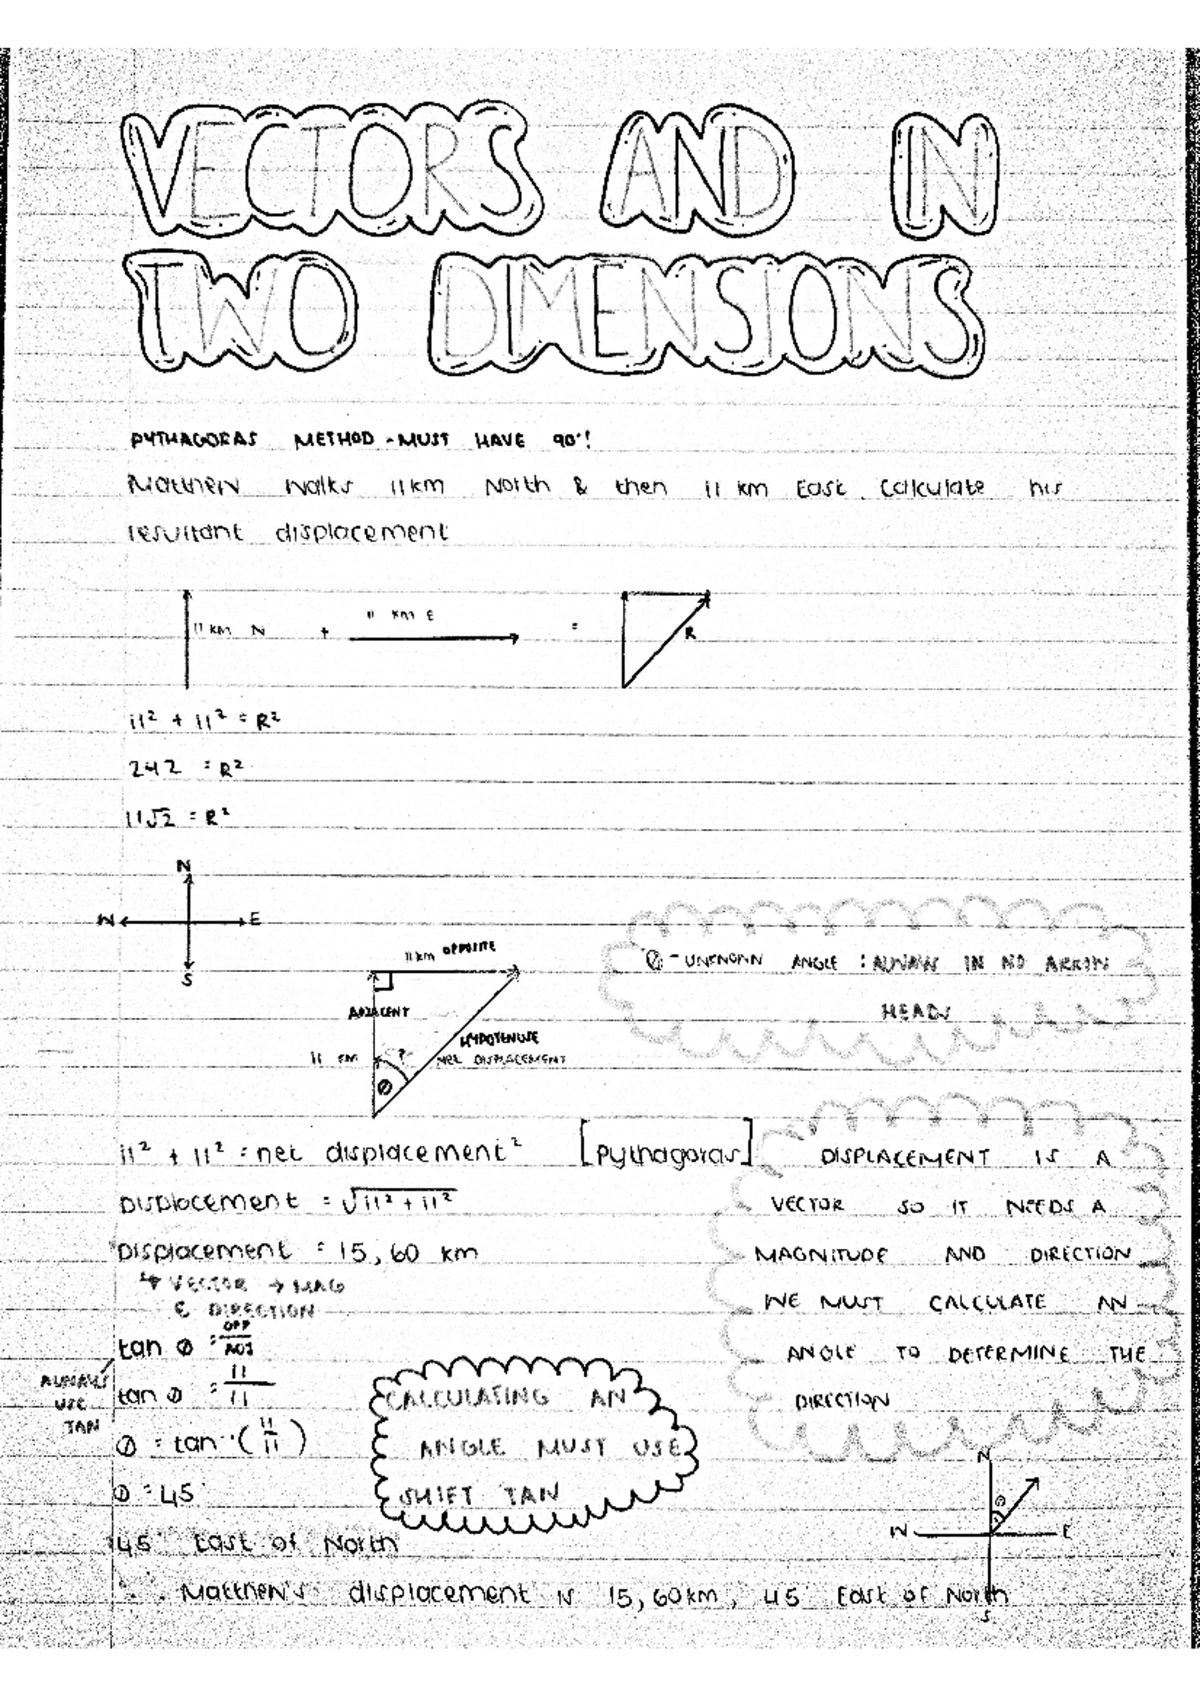 VECTORS AND IN
TWO DIMENSIONS
PYTHAGORAS METHOD - MUST HAVE 90°!
Matthew walks 11km North & then 11 km East. Calculate his
resultant displacement
11 km N + 11 km E = R
11² + 11² = R²
242 = R²
11√2 = R²
N
W E
S
11km OPPOSITE
ADJACENT
HYPOTENUSE
11 km ? NET DISPLACEMENT
θ
θ - UNKNOWN ANGLE : ALWAYS IN NO ARROW
HEADS
11² + 11² = net displacement² [Pythagoras]
Displacement = √11² + 11²
Displacement = 15,60 km
↳ VECTOR → MAG
& DIRECTION
DISPLACEMENT IS A
VECTOR SO IT NEEDS A
MAGNITUDE AND DIRECTION
WE MUST CALCULATE AN
ANGLE TO DETERMINE THE
DIRECTION
tan θ = OPP/ADJ
ALWAYS
USE
TAN
tan θ = 11/11
θ = tan⁻¹(11/11)
θ = 45°
CALCULATING AN
ANGLE MUST USE
SHIFT TAN
N
θ
W E
S
45° East of North
∴ Matthew's displacement is 15,60km, 45° East of North